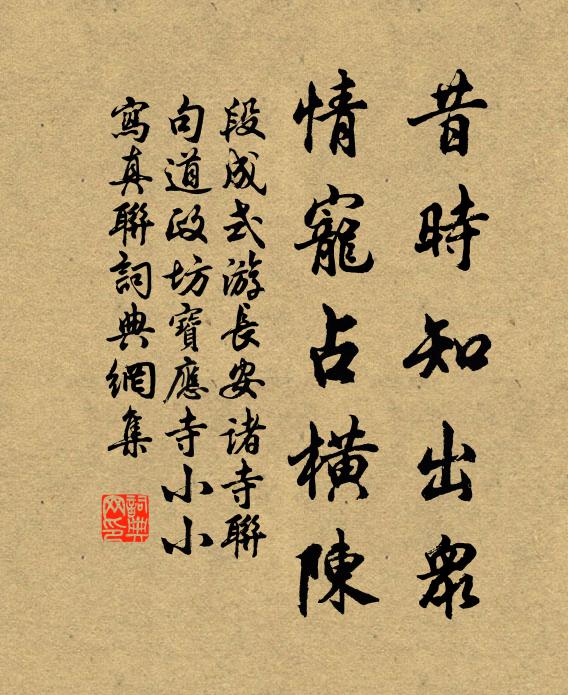 昔時知出眾
情寵占橫陳
段成式游長安諸寺聯
句道政坊寶應寺小小
寫真聯詞典網集
詞典網印